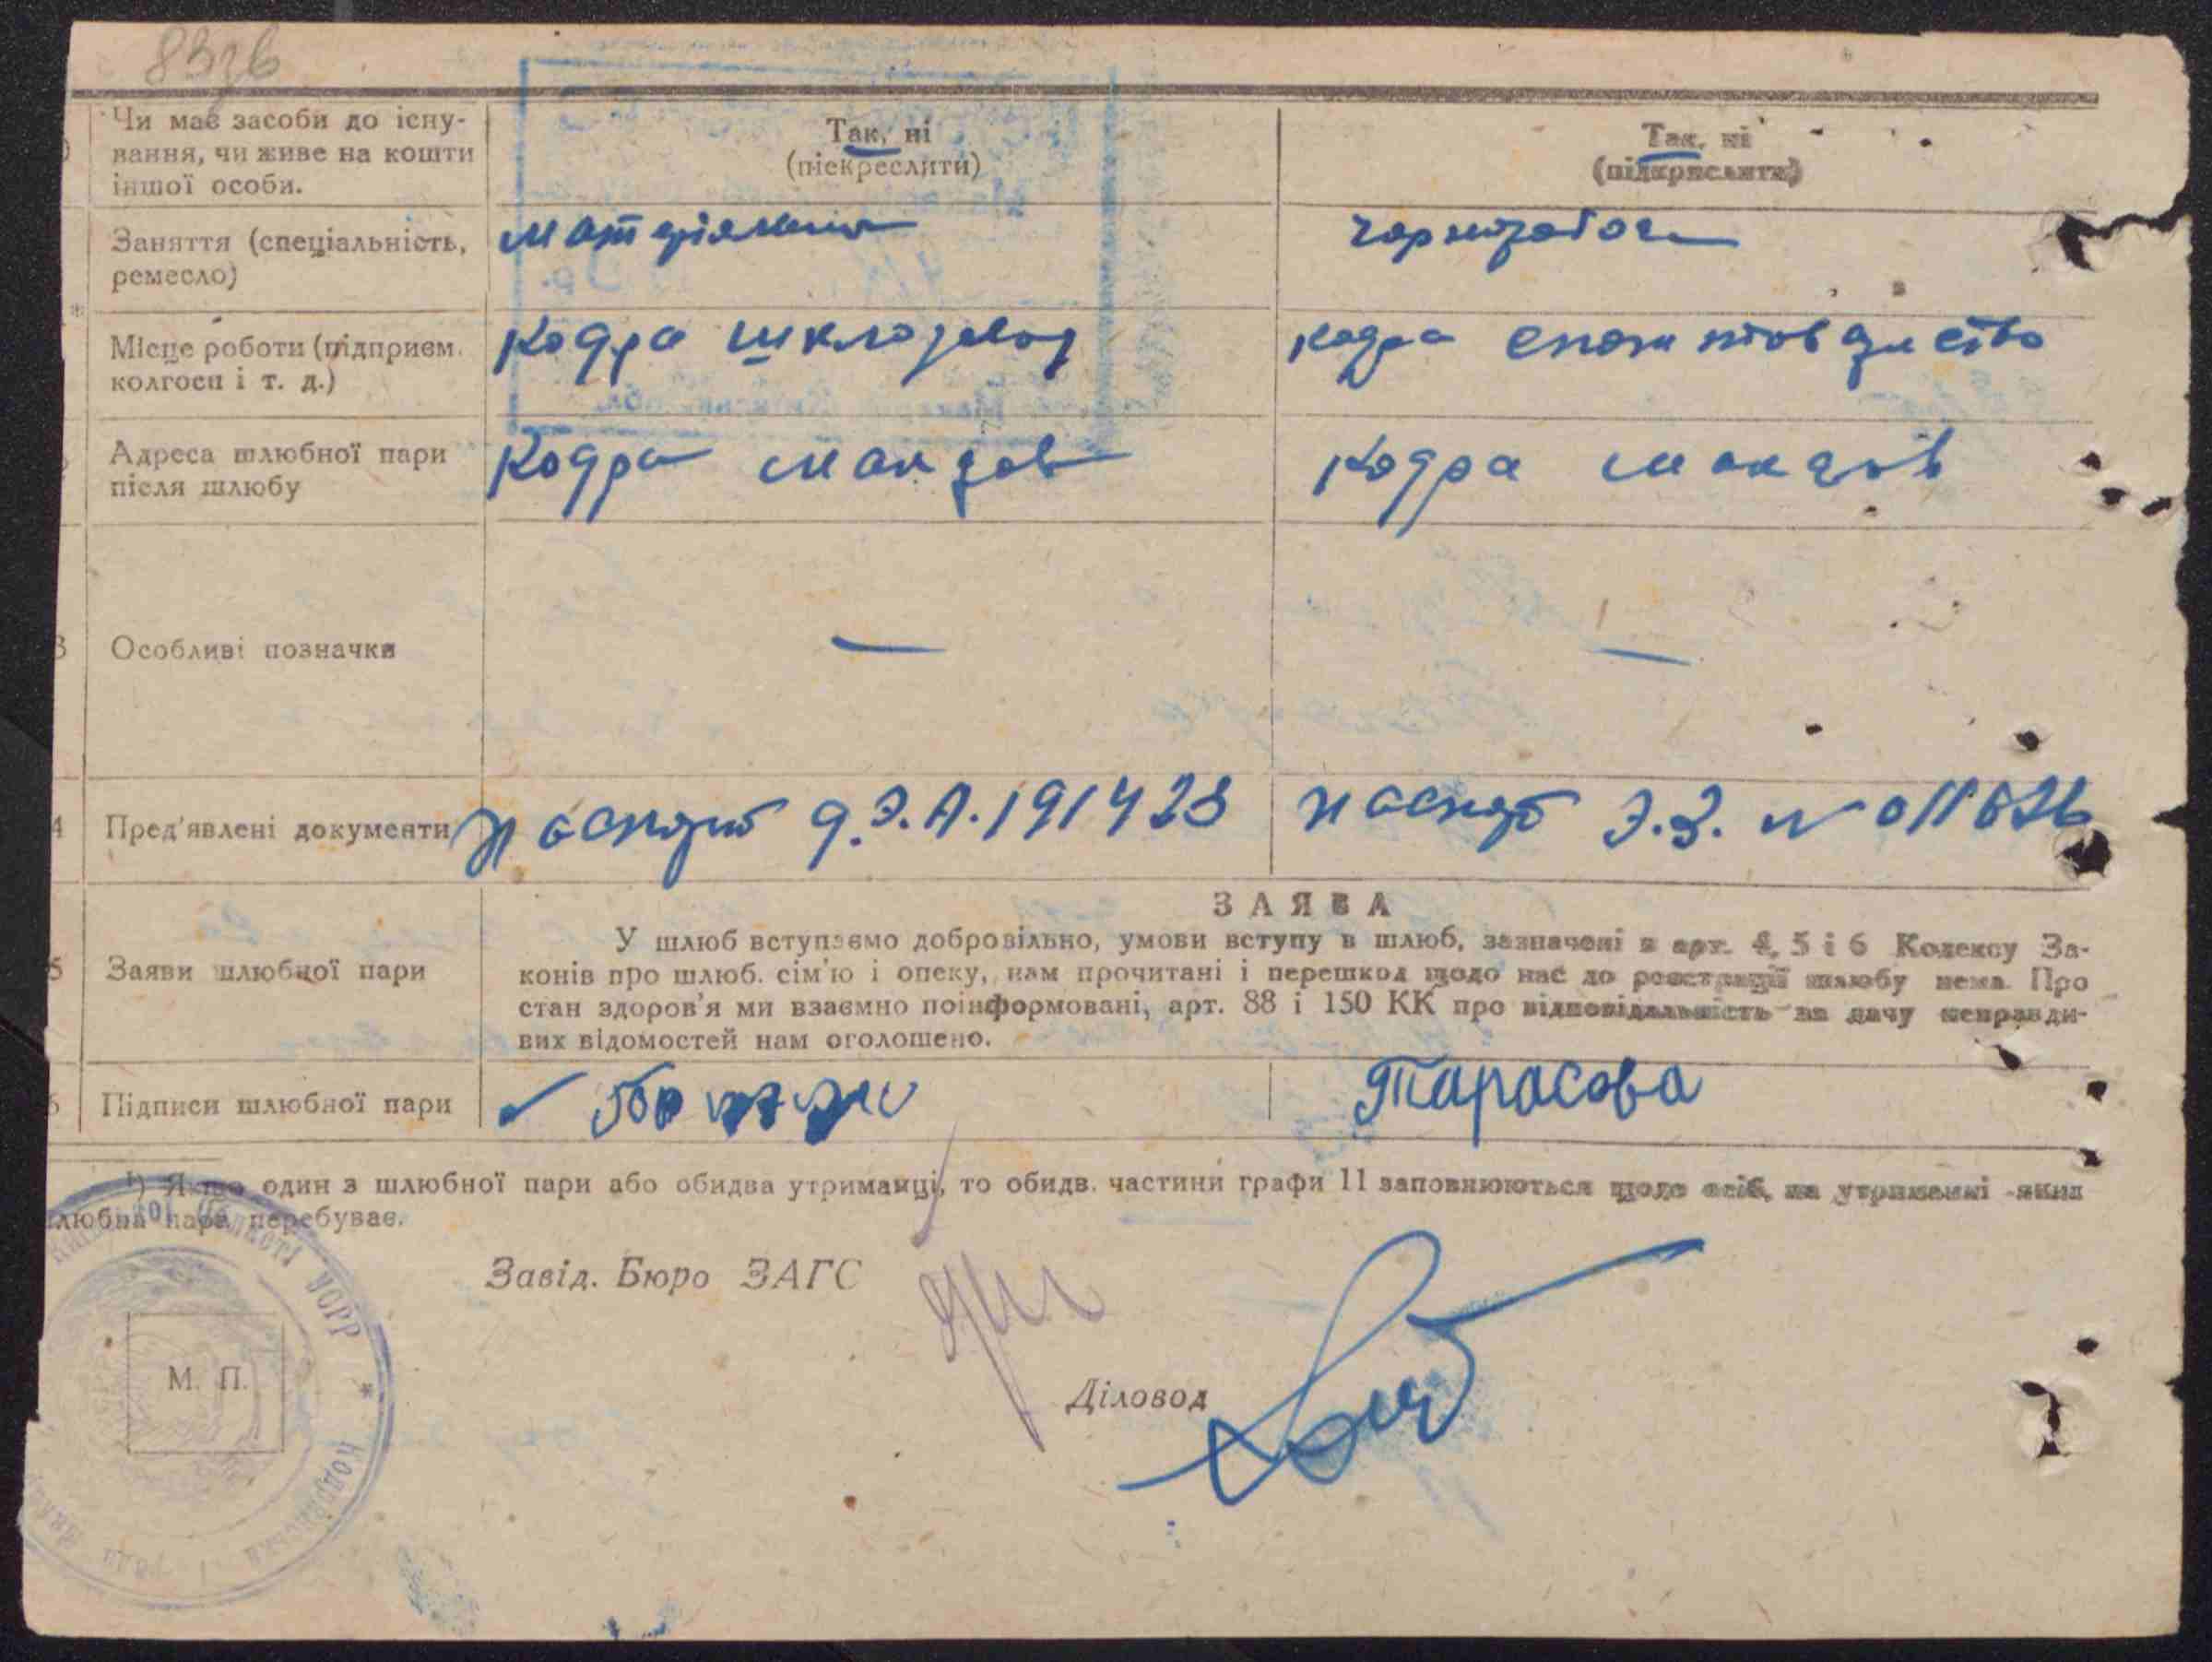 83зв
Чи має засоби до існу-
вання, чи живе на кошти
іншої особи.
Так, ні
(піскреслити)
Так, ні
(підкреслити)
Заняття (спеціальність,
ремесло)
чорнороб
Місце роботи (підприєм.
колгосп і т. д.)
Кодра шклозавод
Кодра
Адреса шлюбної пари
після шлюбу
Кодра
Кодра
3 Особливі позначки
—
—
4 Пред'явлені документи
паспорт 191423
паспорт Э.З. № 011626
ЗАЯВА
5 Заяви шлюбної пари
У шлюб вступаємо добровільно, умови вступу в шлюб, зазначені в арт. 4, 5 і 6 Кодексу За-
конів про шлюб. сім'ю і опеку, нам прочитані і перешкод щодо нас до реєстрації шлюбу нема. Про
стан здоров'я ми взаємно поінформовані, арт. 88 і 150 КК про відповідальність за дачу неправди-
вих відомостей нам оголошено.
Підписи шлюбної пари
Тарасова
¹) Якщо один з шлюбної пари або обидва утриманці, то обидв. частини графи 11 заповнюються щодо осіб, на утриманні яких
шлюбна пара перебуває.
Завід. Бюро ЗАГС
Діловод
М. П.
області УСРР